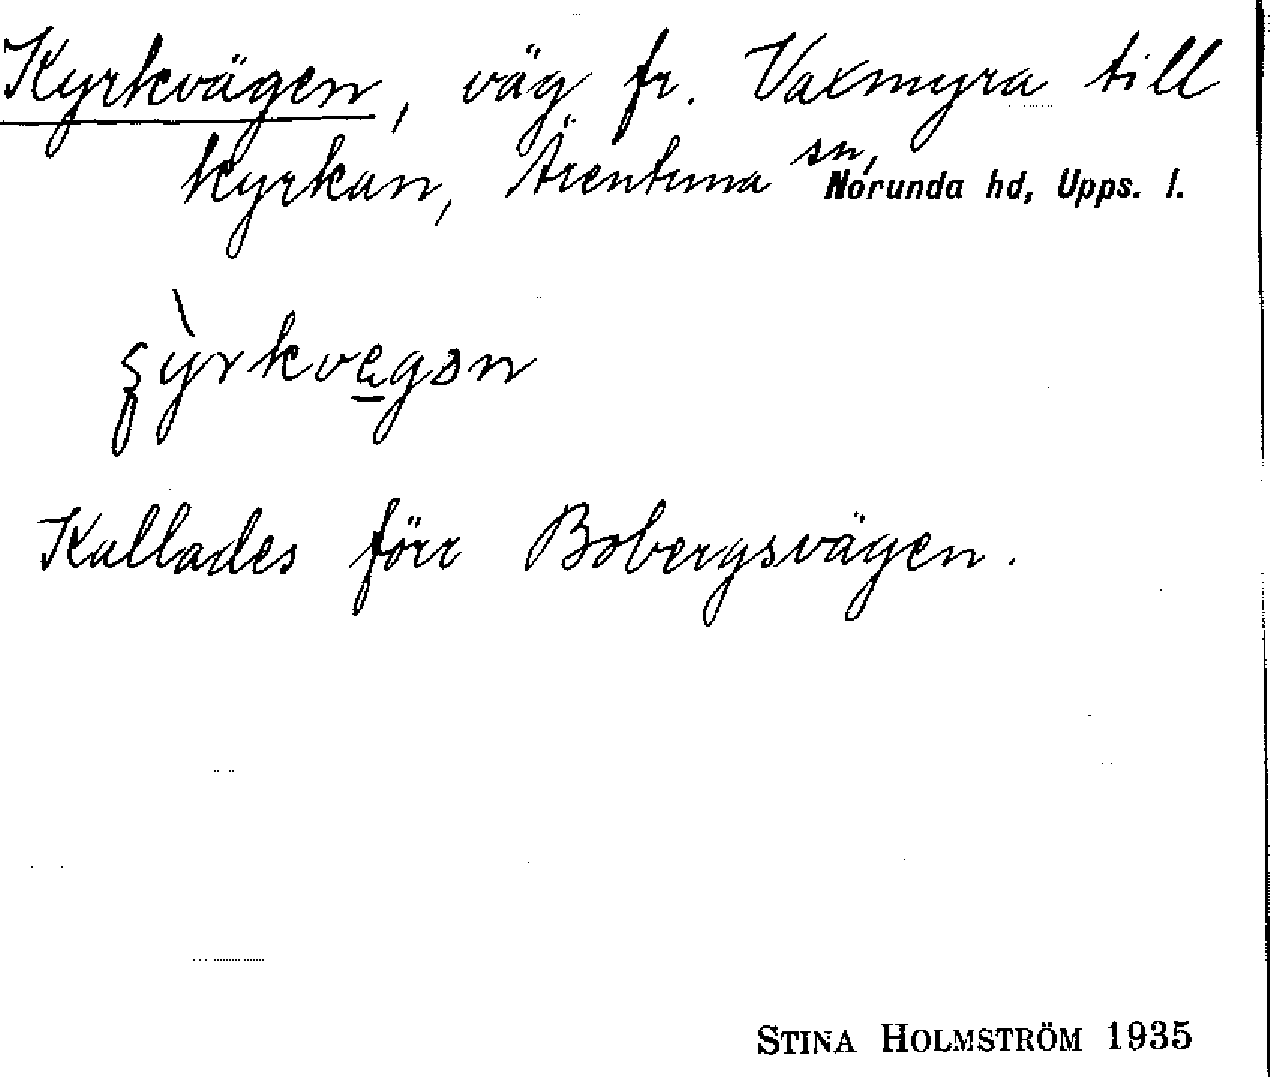 Kyrkvägen, väg fr. Vaxmyra till
kyrkan, Ärentuna sn, Norunda hd, Upps. l.
Kallades förr Bobergsvägen.
STINA HOLMSTRÖM 1935